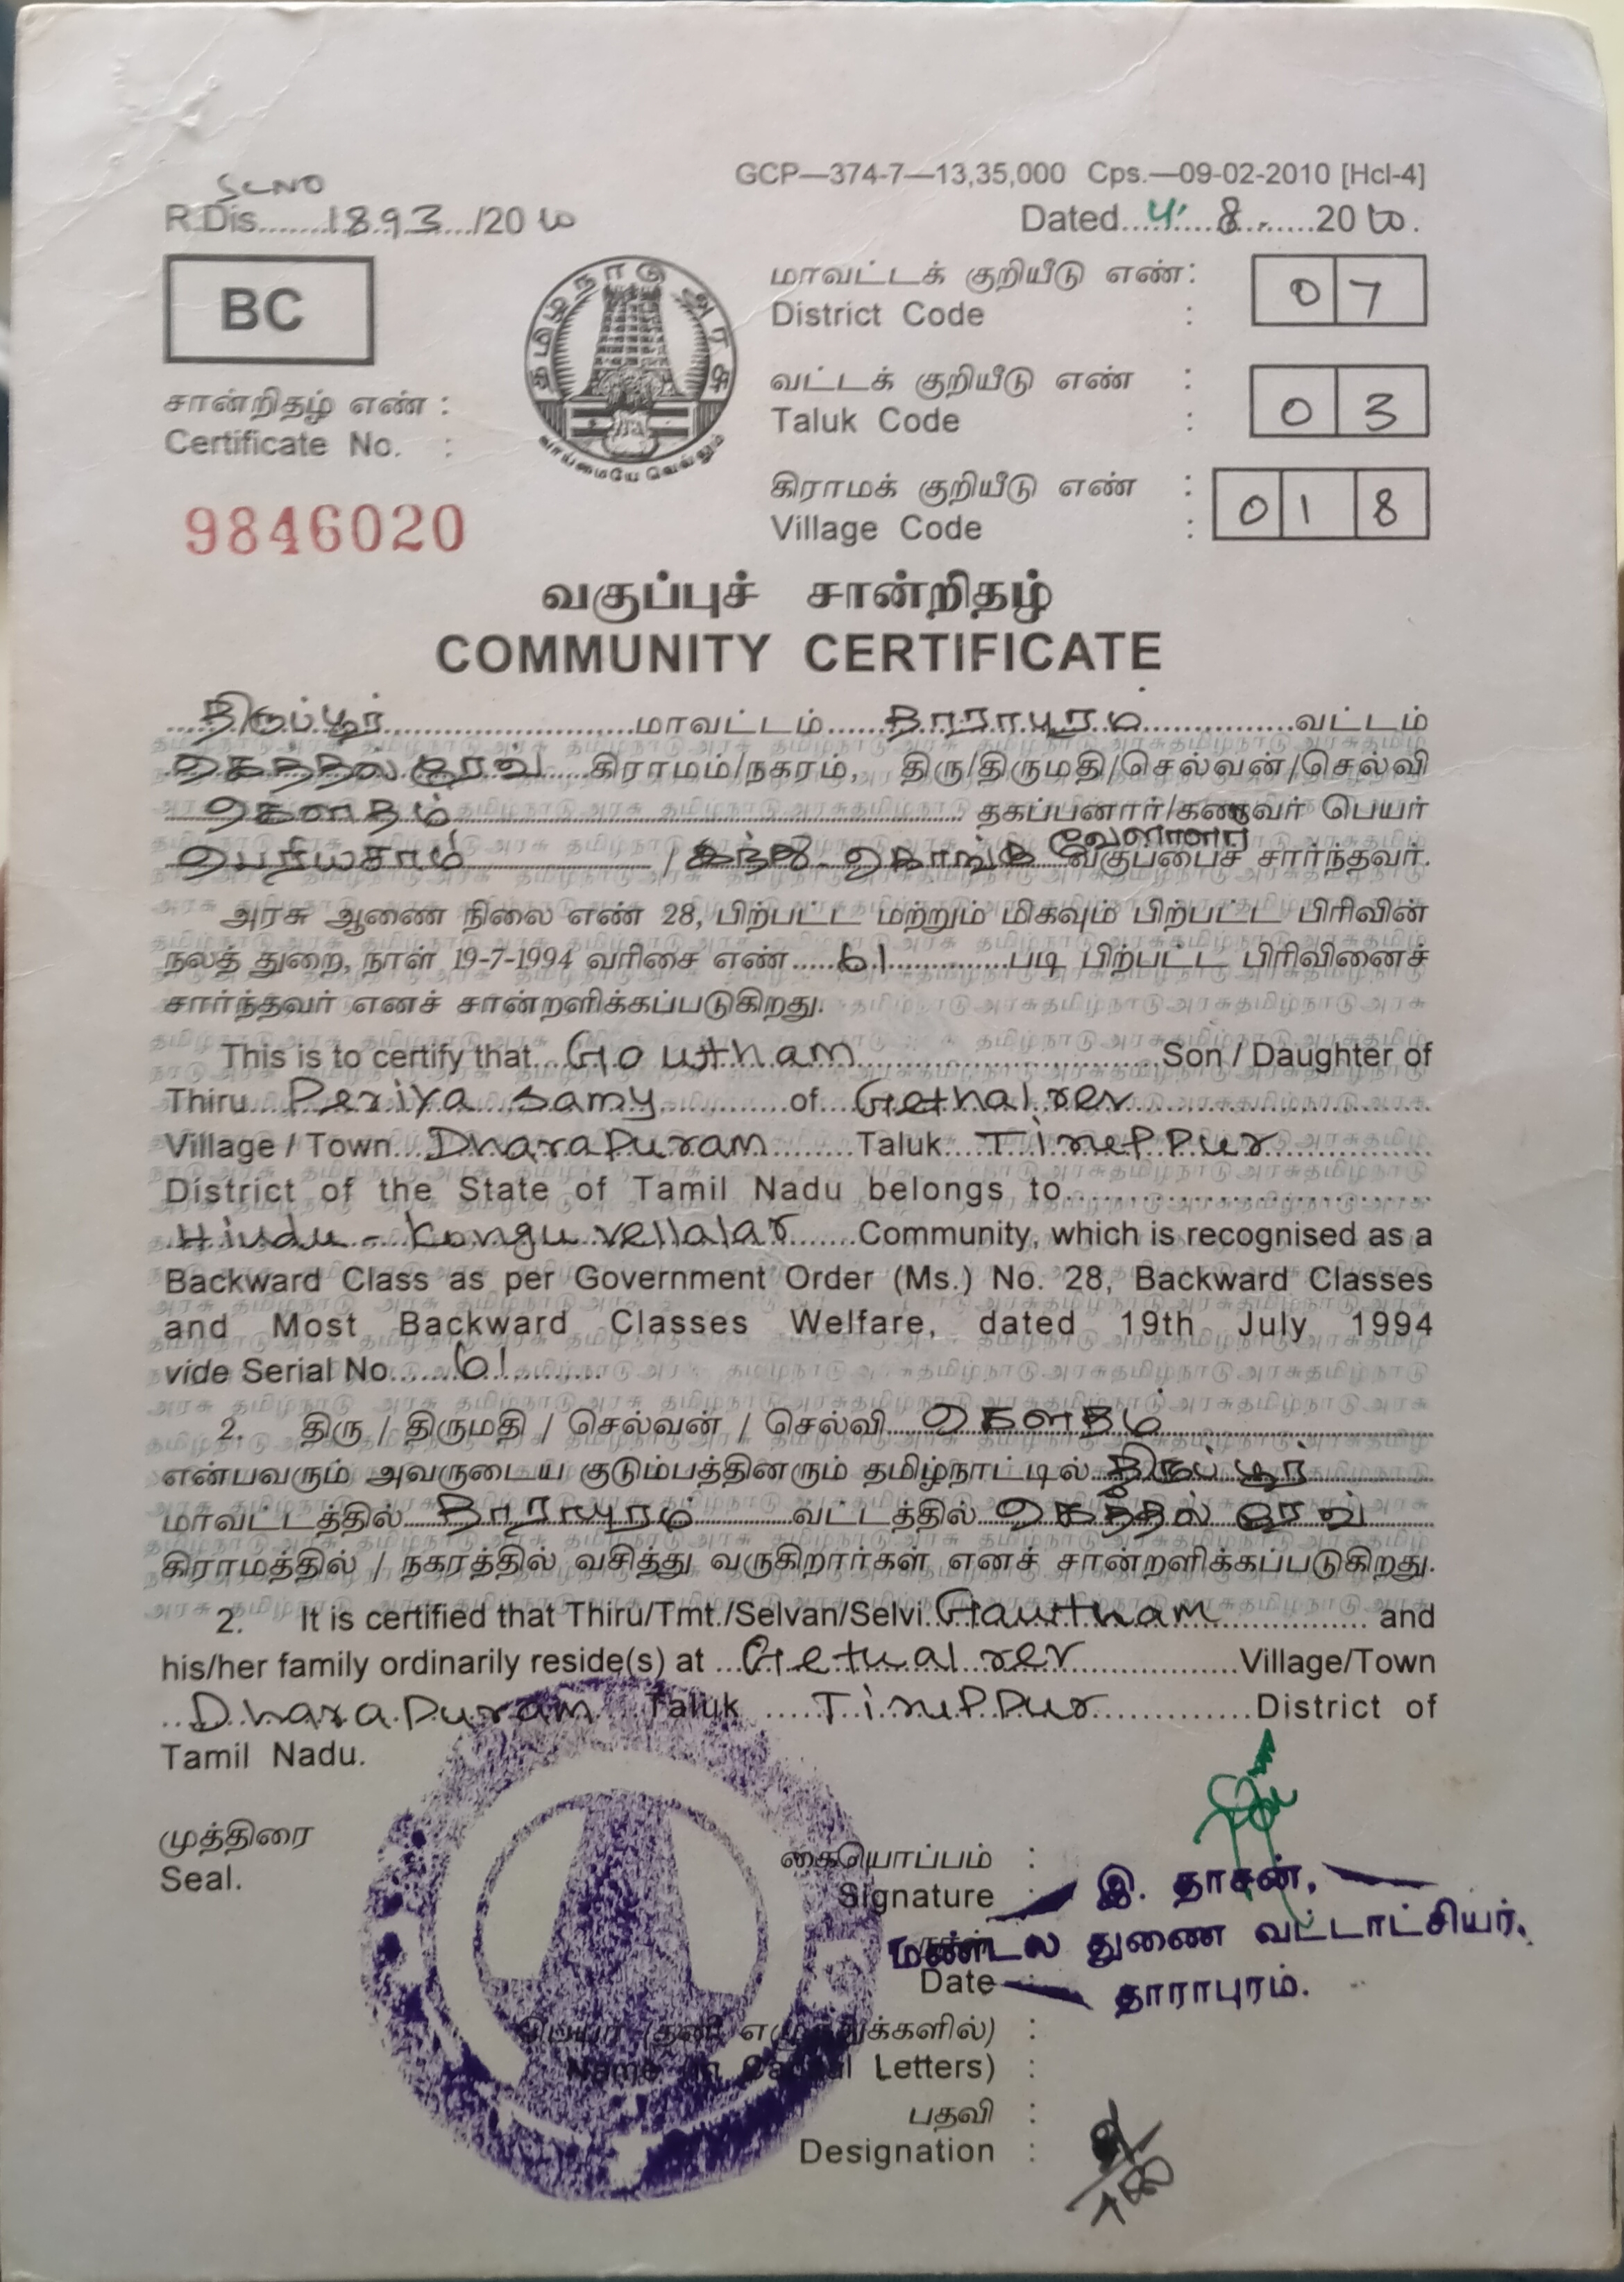 GCP—374-7—13,35,000 Cps.—09-02-2010 [Hcl-4]
SLNO
R.Dis.......1893.../20 10
Dated...4.8.......2010.
BC
தமிழ்நாடு அரசு
வாய்மையே வெல்லும்
சான்றிதழ் எண் :
Certificate No. :
9846020
மாவட்டக் குறியீடு எண் :
District Code : 0 7
வட்டக் குறியீடு எண் :
Taluk Code : 0 3
கிராமக் குறியீடு எண் :
Village Code : 0 1 8
வகுப்புச் சான்றிதழ்
COMMUNITY CERTIFICATE
திருப்பூர் மாவட்டம் தாராபுரம் வட்டம்
கெத்தல்ரேவ் கிராமம்/நகரம், திரு/திருமதி/செல்வன்/செல்வி
கெளதம் தகப்பனார்/கணவர் பெயர்
வேளாளர்
பெரியசாமி / இந்து - கொங்கு வகுப்பைச் சார்ந்தவர்.
அரசு ஆணை நிலை எண் 28, பிற்பட்ட மற்றும் மிகவும் பிற்பட்ட பிரிவின்
நலத் துறை, நாள் 19-7-1994 வரிசை எண் 61 படி பிற்பட்ட பிரிவினைச்
சார்ந்தவர் எனச் சான்றளிக்கப்படுகிறது.
This is to certify that Goutham Son / Daughter of
Thiru Periya samy of Gethalrev
Village / Town Dharapuram Taluk Tiruppur
District of the State of Tamil Nadu belongs to
Hindu - Kongu vellalar Community, which is recognised as a
Backward Class as per Government Order (Ms.) No. 28, Backward Classes
and Most Backward Classes Welfare, dated 19th July 1994
vide Serial No 61
2. திரு / திருமதி / செல்வன் / செல்வி கெளதம்
என்பவரும் அவருடைய குடும்பத்தினரும் தமிழ்நாட்டில் திருப்பூர்
மாவட்டத்தில் தாராபுரம் வட்டத்தில் கெத்தல் ரேவ்
கிராமத்தில் / நகரத்தில் வசித்து வருகிறார்கள் எனச் சான்றளிக்கப்படுகிறது.
2. It is certified that Thiru/Tmt./Selvan/Selvi Gautham and
his/her family ordinarily reside(s) at Gethalrev Village/Town
Dharapuram Taluk Tiruppur District of
Tamil Nadu.
முத்திரை
Seal.
கையொப்பம் :
Signature :
இ. தாசன்,
மண்டல துணை வட்டாட்சியர்,
Date
தாராபுரம்.
பெயர் (தனி எழுத்துக்களில்) :
Name (in Capital Letters) :
பதவி :
Designation :